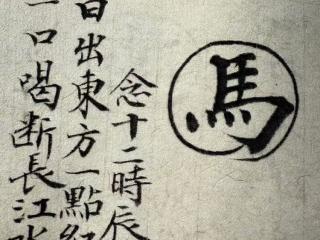 馬
念十二時辰
日出東方一點紅
一口喝断長江水